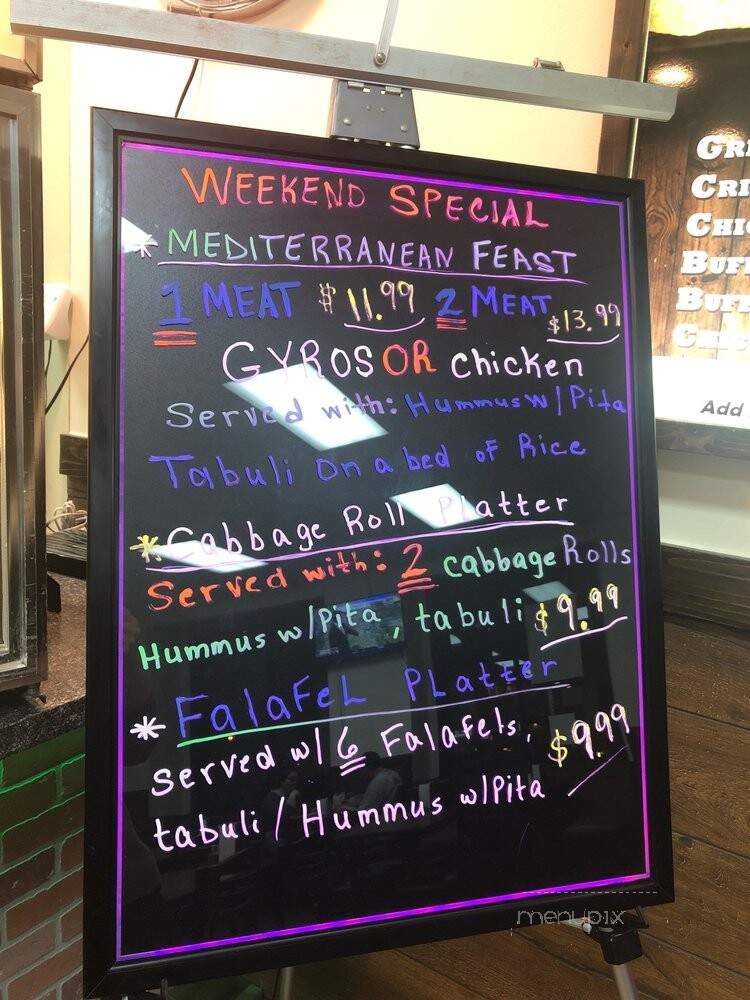 WEEKEND SPECIAL
* MEDITERRANEAN FEAST
1 MEAT $11.99 2 MEAT $13.99
GYROS OR chicken
Served with: Hummus w/ Pita
Tabuli on a bed of Rice
* Cabbage Roll Platter
Served with: 2 cabbage Rolls
Hummus w/Pita, tabuli $9.99
* FalaFeL PLatter
served w/ 6 Falafels, $9.99
tabuli / Hummus w/Pita
Add
menupix